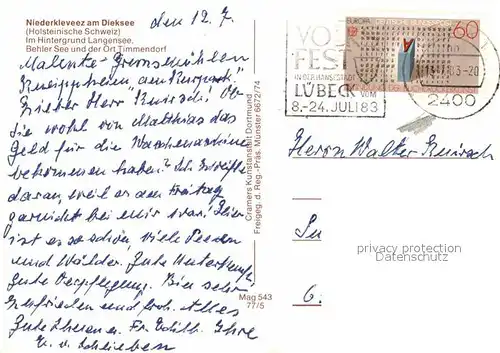 Niederkleveez am Dieksee
(Holsteinische Schweiz)
Im Hintergrund Langensee,
Behler See und der Ort Timmendorf
den 12.7.
Malente-Gremsmühlen
Kneippheim am Kurpark.
Lieber Herr Kuirsch! Ob
Sie wohl von Matthias das
Geld für die Waschmaschine
bekommen haben? Ich
daran, weil er am Freitag
garnicht bei mir war. Hier
ist es so schön, viele Seen
und Wälder. Gute Unterkunft
gute Verpflegung. Bin sehr
zufrieden und froh. Alles
Gute Ihnen u. Fr. Edith. Ihre
E. v. Schlieben
Cramers Kunstanstalt Dortmund
Freigeg. d. Reg.-Präs. Münster 6672/74
Mag 543
77/5
VO
FES
IN DER HANSESTADT
LÜBECK VOM
8.-24. JULI 83
EUROPA DEUTSCHE BUNDESPOST
60
13.7.83-20
2400
Herrn Walter
In
6.
privacy protection
Datenschutz